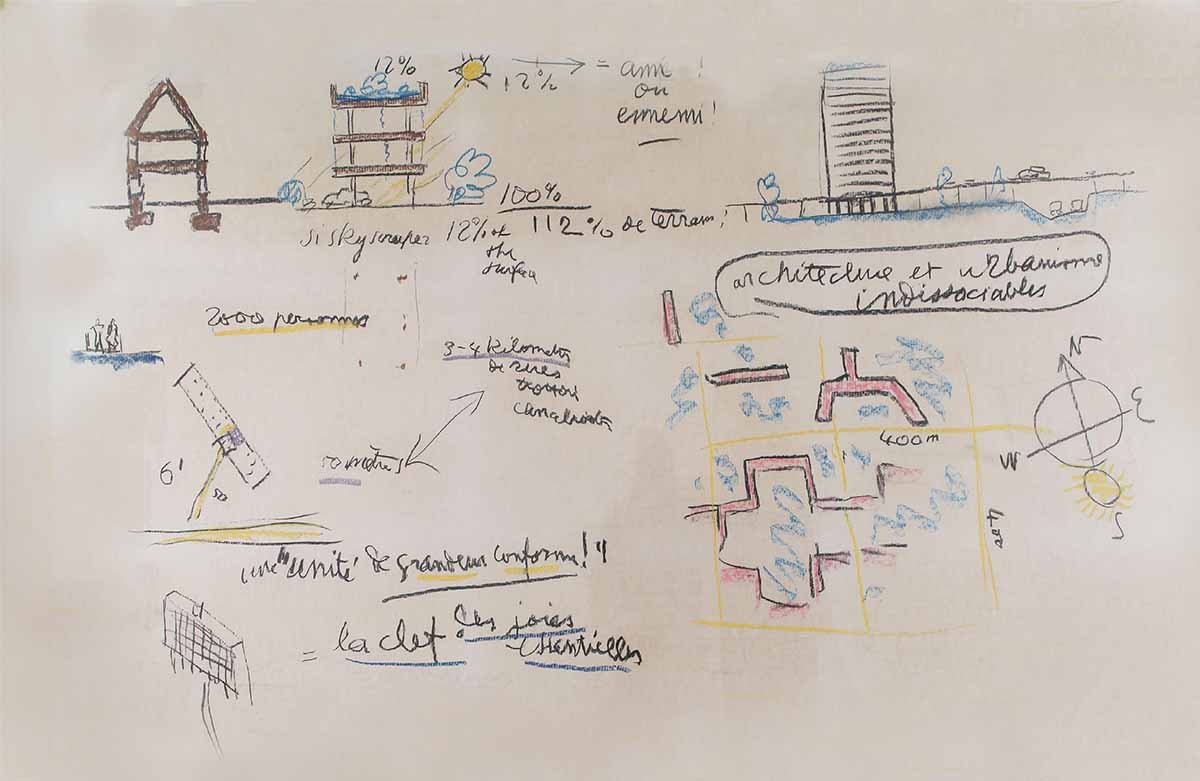 12%
12%
= ami !
ou
ennemi !
100%
112% de terrain !
si skyscraper 12% of
the
surface
architecture et urbanisme
indissociables
2000 personnes
3-4 kilometres
de rues
N
E
W
S
400 m
400
6'
50
50 mètres
une "unité de grandeur conforme !"
= la clef : les joies
essentielles